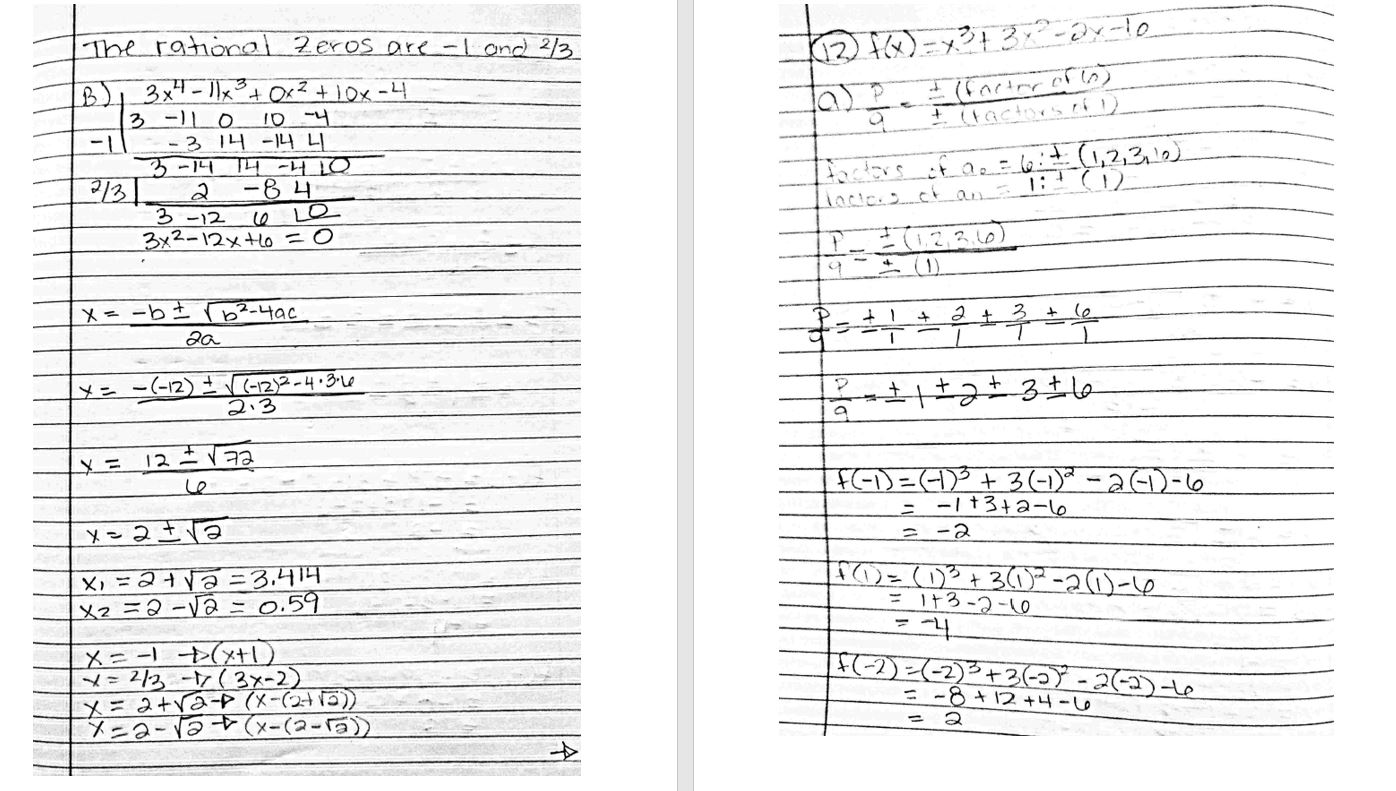 The rational zeros are -1 and 2/3
B) 3x⁴-11x³+0x²+10x-4
3 -11 0 10 -4
-1| -3 14 -14 4
3 -14 14 -4 |0
2/3| 2 -8 4
3 -12 6 |0
3x²-12x+6 = 0
x = -b ± √b²-4ac
2a
x = -(-12) ± √(-12)²-4·3·6
2·3
x = 12 ± √72
6
x = 2 ± √2
x₁ = 2+√2 = 3.414
x₂ = 2-√2 = 0.59
x = -1 → (x+1)
x = 2/3 → (3x-2)
x = 2+√2 → (x-(2+√2))
x = 2-√2 → (x-(2-√2))
→
(12) f(x)=x³+3x²-2x-6
a) p = ± (factor of 6)
q ± (factors of 1)
factors of a₀ = 6: ± (1,2,3,6)
factors of aₙ = 1: ± (1)
p = ± (1,2,3,6)
q ± (1)
p = ± 1 ± 2 ± 3 ± 6
q 1 1 1 1
p = ± 1 ± 2 ± 3 ± 6
q
f(-1)=(-1)³ + 3(-1)² - 2(-1)-6
= -1+3+2-6
= -2
f(1)= (1)³ + 3(1)² -2(1)-6
= 1+3-2-6
= -4
f(-2)=(-2)³+3(-2)² -2(-2)-6
= -8+12+4-6
= 2